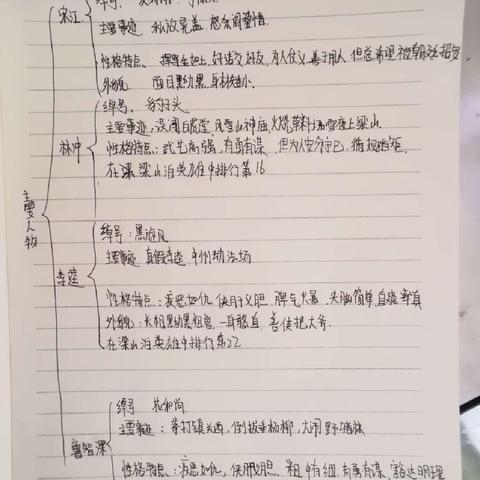 主要人物
宋江
绰号：
主要事迹 私放晁盖、怒杀阎婆惜
性格特点、 好结交朋友，为人仗义、善于用人，但总希望被朝廷招安
外貌 面目黑，身材矮小、
林冲
绰号、豹子头
主要事迹，误闯白虎堂，风雪山神庙，火烧草料场雪夜上梁山
性格特点：武艺高强、有勇有谋、但为人安分守己，循规蹈矩、
在 梁山泊英雄中排行第16
李逵
绰号：黑旋风
主要事迹 真假李逵、江州劫法场
性格特点：疾恶如仇，侠肝义胆、脾气火暴、头脑简单，直爽率真
外貌：长相黝黑粗鲁、善使把大斧、
在梁山泊英雄中排行第22
鲁智深
绰号 花和尚
主要事迹：拳打镇关西，倒拔垂杨柳，大闹野猪林
性格特点：疾恶如仇，侠肝义胆、粗中有细，有勇有谋，豁达明理